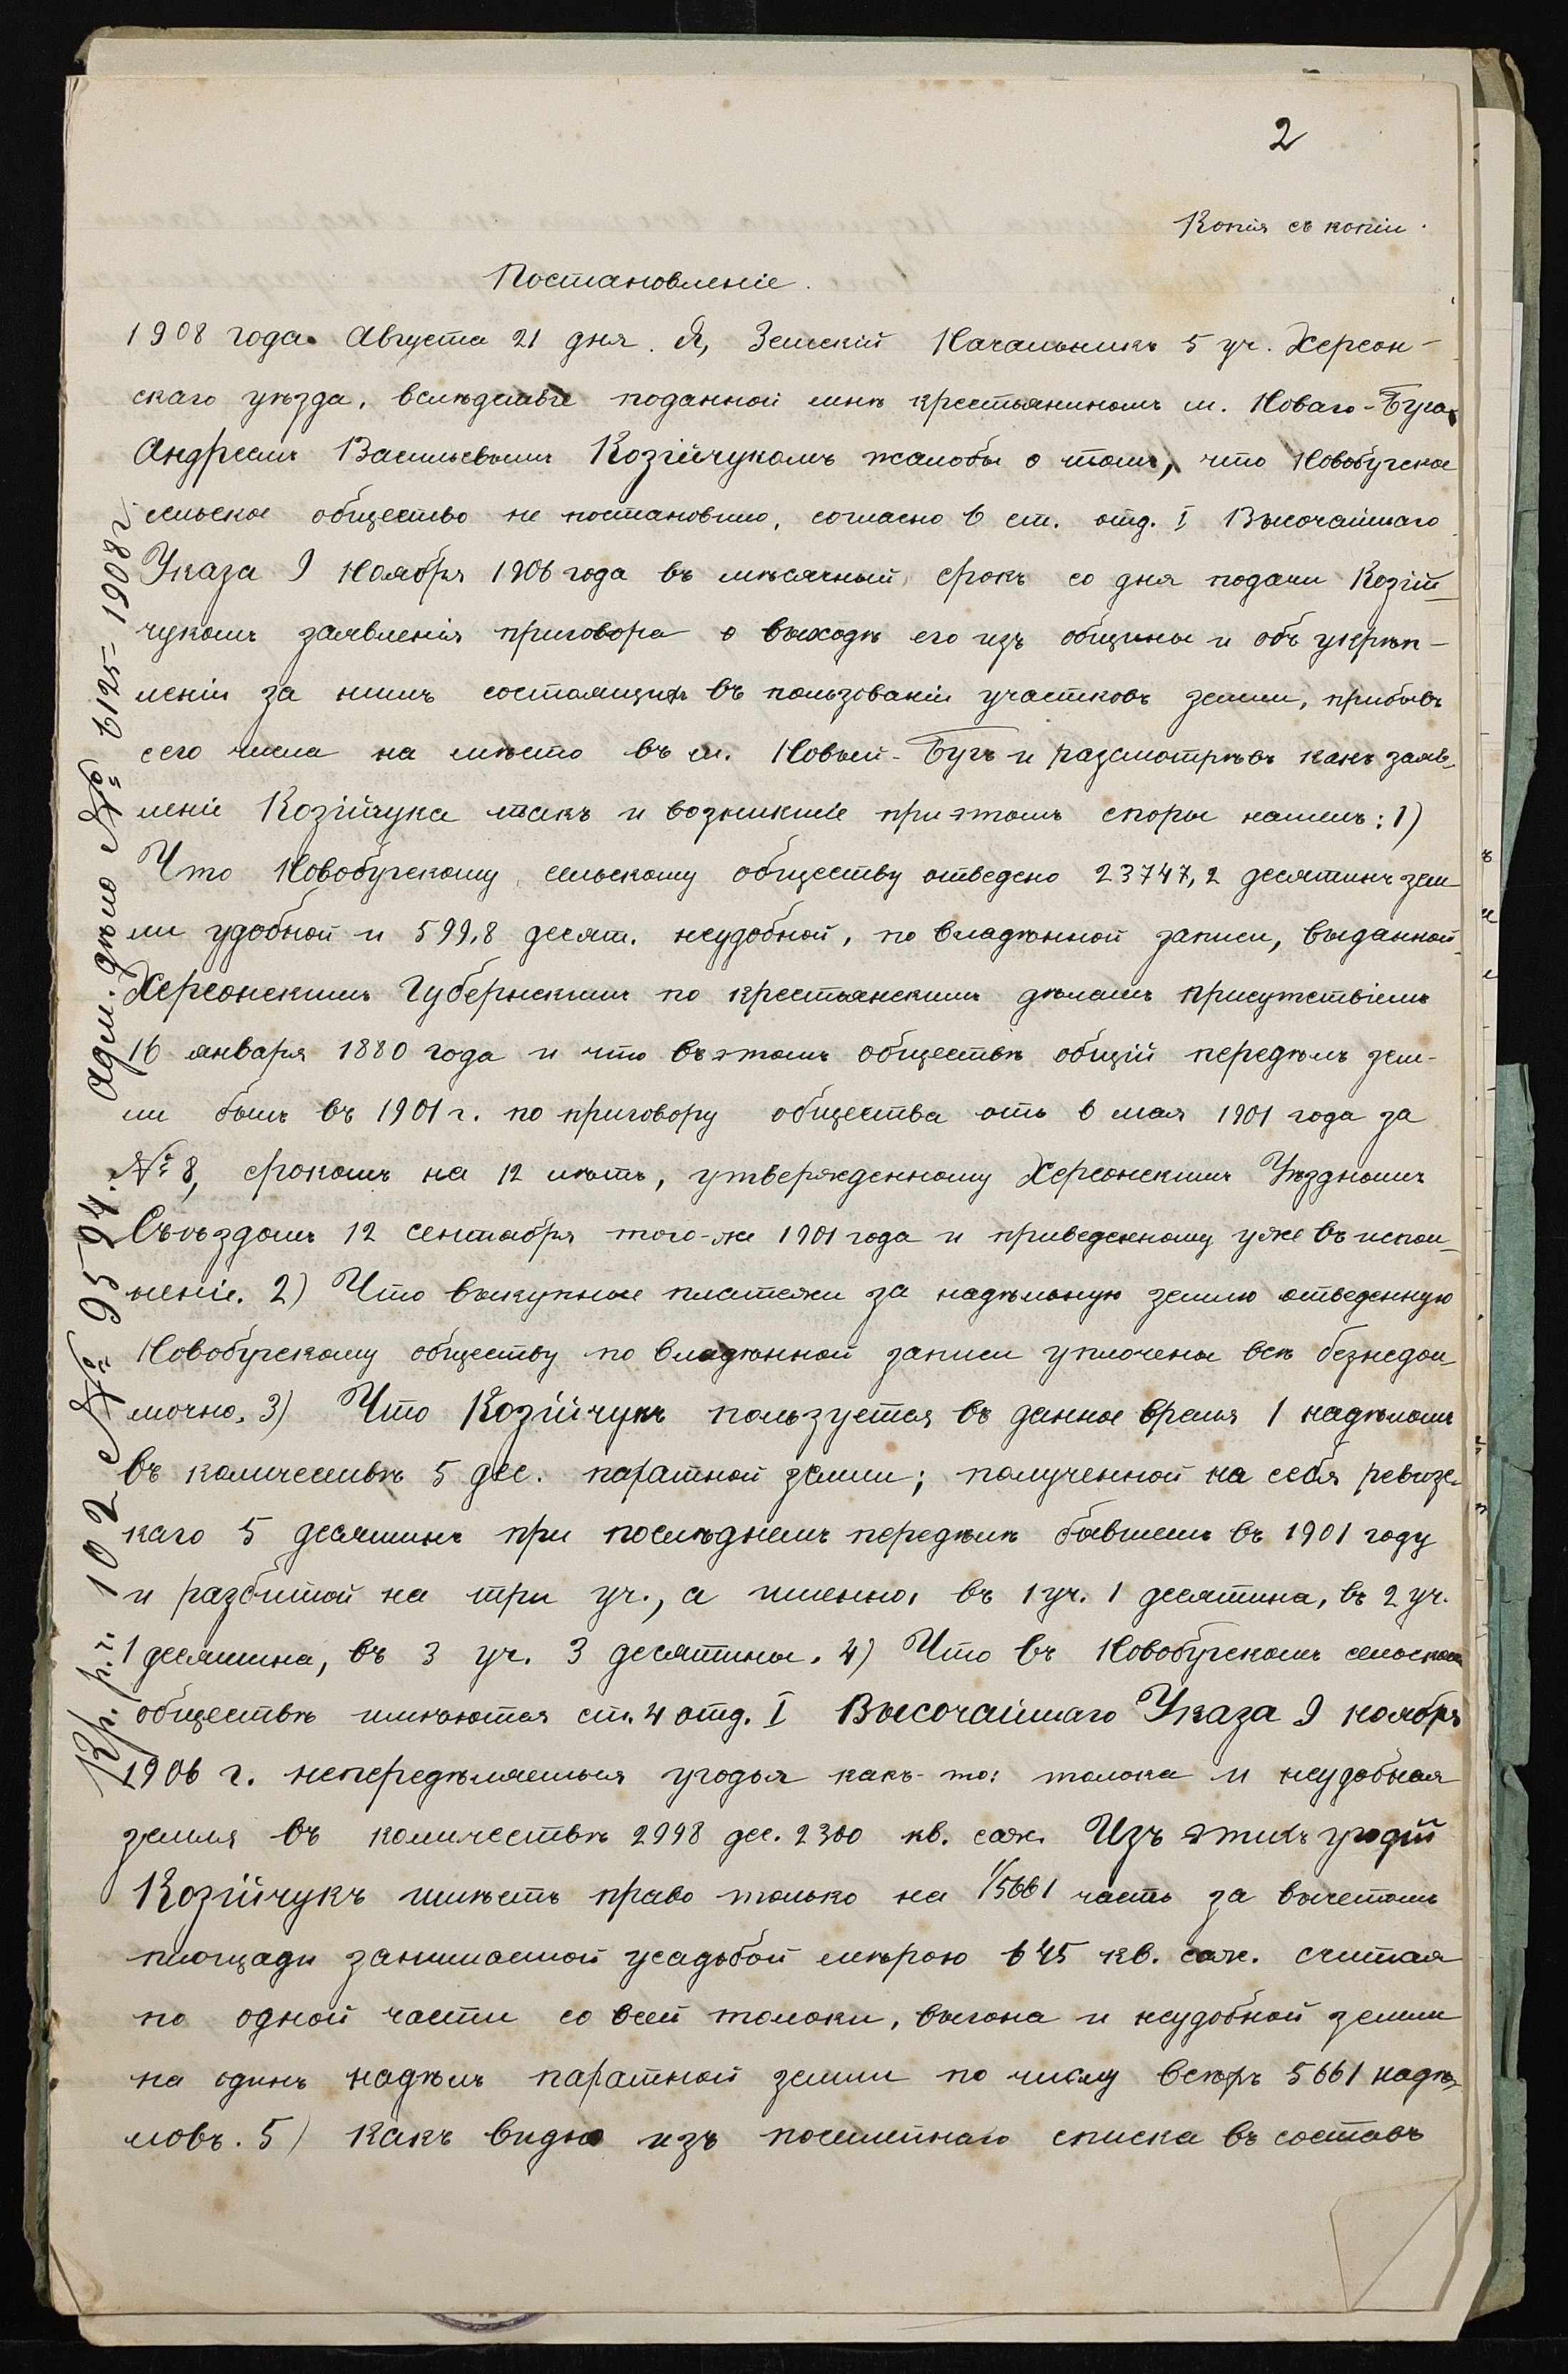 2
Копія съ копіи.
Постановленіе.
1908 года Августа 21 дня. Я, Земскій Начальникъ 5 уч. Херсон-
скаго уѣзда, вслѣдствіе поданной мнѣ крестьяниномъ м. Новаго-Буга
Андреемъ Васильевымъ Козійчукомъ жалобы о томъ, что Новобугское
сельское общество не постановило, согласно 6 ст. отд. I Высочайшаго
Указа 9 Ноября 1906 года въ мѣсячный срокъ со дня подачи Козій-
чукомъ заявленія приговора о выходѣ его изъ общины и объ укрѣп-
леніи за нимъ состоящихъ въ пользованіи участковъ земли, прибывъ
сего числа на мѣсто въ м. Новый-Бугъ и разсмотрѣвъ какъ заяв-
леніе Козійчука такъ и возникшіе при этомъ споры нашелъ: 1)
Что Новобугскому сельскому обществу отведено 23747,2 десятинъ зем-
ли удобной и 599,8 десят. неудобной, по владѣнной записи, выданной
Херсонскимъ Губернскимъ по крестьянскимъ дѣламъ Присутствіемъ
16 января 1880 года и что въ этомъ обществѣ общій передѣлъ зем-
ли былъ въ 1901 г. по приговору общества отъ 6 мая 1901 года за
№ 8, срокомъ на 12 лѣтъ, утвержденному Херсонскимъ Уѣзднымъ
Съѣздомъ 12 сентября того-же 1901 года и приведенному уже въ испол-
неніе. 2) Что выкупные платежи за надѣльную землю отведенную
Новобугскому обществу по владѣнной записи уплочены всѣ безнедои-
мочно. 3) Что Козійчукъ пользуется въ данное время 1 надѣломъ
въ количествѣ 5 дес. паратной земли; полученной на себя ревизс-
каго 5 десятинъ при послѣднемъ передѣлѣ бывшемъ въ 1901 году
и разбитой на три уч., а именно, въ 1 уч. 1 десятина, въ 2 уч.
1 десятина, въ 3 уч. 3 десятины. 4) Что въ Новобугскомъ сельскомъ
обществѣ имѣются ст. 4 отд. I Высочайшаго Указа 9 ноября
1906 г. непередѣляемыя угодья какъ-то: толока и неудобная
земля въ количествѣ 2998 дес. 2300 кв. саж. Изъ этихъ угодій
Козійчукъ имѣетъ право только на 1/5661 часть за вычетомъ
площади занимаемой усадьбой мѣрою 645 кв. саж. считая
по одной части со всей толоки, выгона и неудобной земли
на одинъ надѣлъ паратной земли по числу всѣхъ 5661 надѣ-
ловъ. 5) Какъ видно изъ посемейнаго списка въ составъ
Кр. р. г. 102 № 9594. Адм. дѣло № 6125- 1908 г.